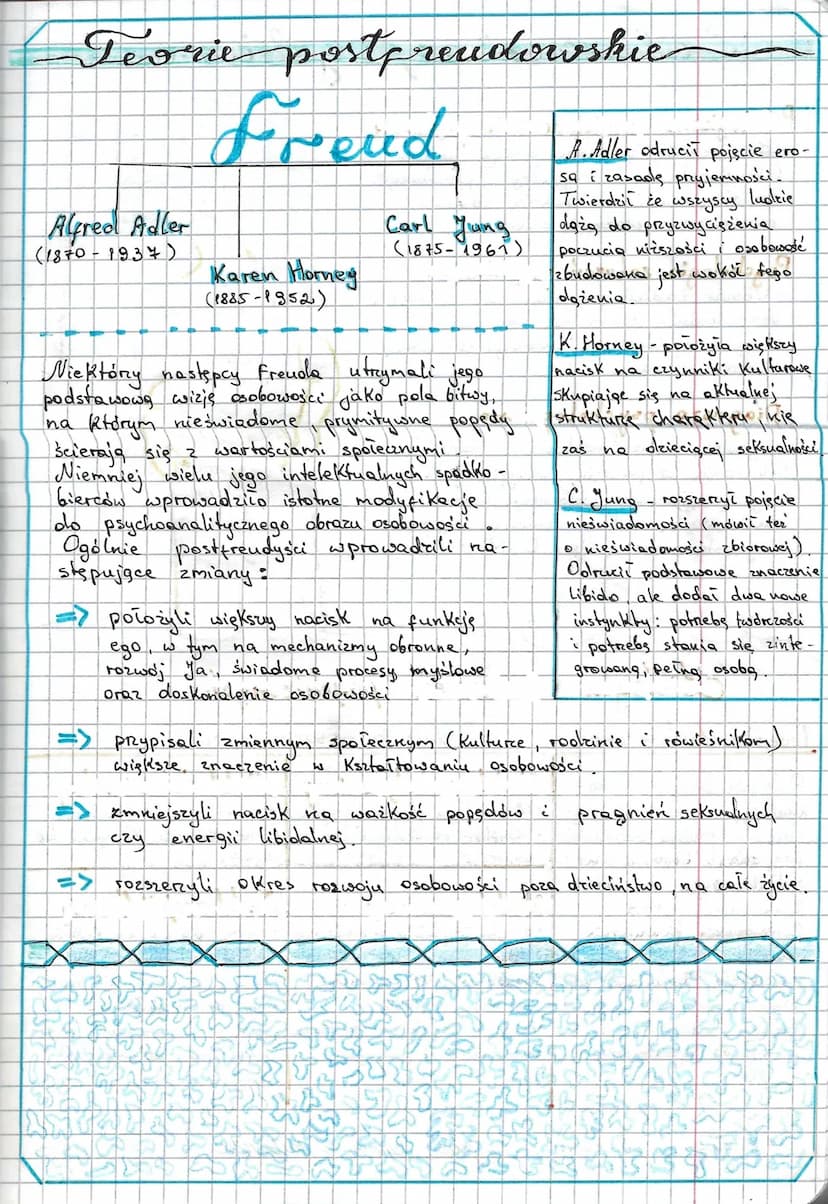 Teorie postfreudowskie
Freud
Alfred Adler
(1870-1937)
Karen Horney
(1885-1952)
Carl Jung
(1875-1961)
Niektóry następcy Freuda utrzymali jego
podstawową wizję osobowości jako pola bitwy,
na którym nieświadome, prymitywne popędy
ścierają się z wartościami społecznymi.
Niemniej wielu jego intelektualnych spadko-
bierców wprowadziło istotne modyfikacje
do psychoanalitycznego obrazu osobowości.
Ogólnie postfreudyści wprowadzili na-
stępujące zmiany:
=> położyli większy nacisk na funkcję
ego, w tym na mechanizmy obronne,
rozwój Ja, świadome procesy myślowe
oraz doskonalenie osobowości
=> przypisali zmiennym społecznym (kulturze, rodzinie i rówieśnikom)
większe znaczenie w kształtowaniu osobowości.
=> zmniejszyli nacisk na ważkość popędów i pragnień seksualnych
czy energii libidalnej.
=> rozszerzyli okres rozwoju osobowości poza dzieciństwo, na całe życie.
A. Adler odrucił pojęcie ero-
sa i zasadę przyjemności.
Twierdził że wszyscy ludzie
dążą do przyzwyciężenia
poczucia niższości i osobowość
zbudowana jest wokół tego
dążenia.
K. Horney - położyła większy
nacisk na czynniki kulturowe
skupiając się na aktualnej
strukturze charakteru, nie
zaś na dziecięcej seksualności
C. Jung - rozszerzył pojęcie
nieświadomości (mówił też
o nieświadomości zbiorowej).
Odrucił podstawowe znaczenie
libido, ale dodał dwa nowe
instynkty: potrzebę twórczości
i potrzebę stania się zinte-
growaną, pełną osobą.